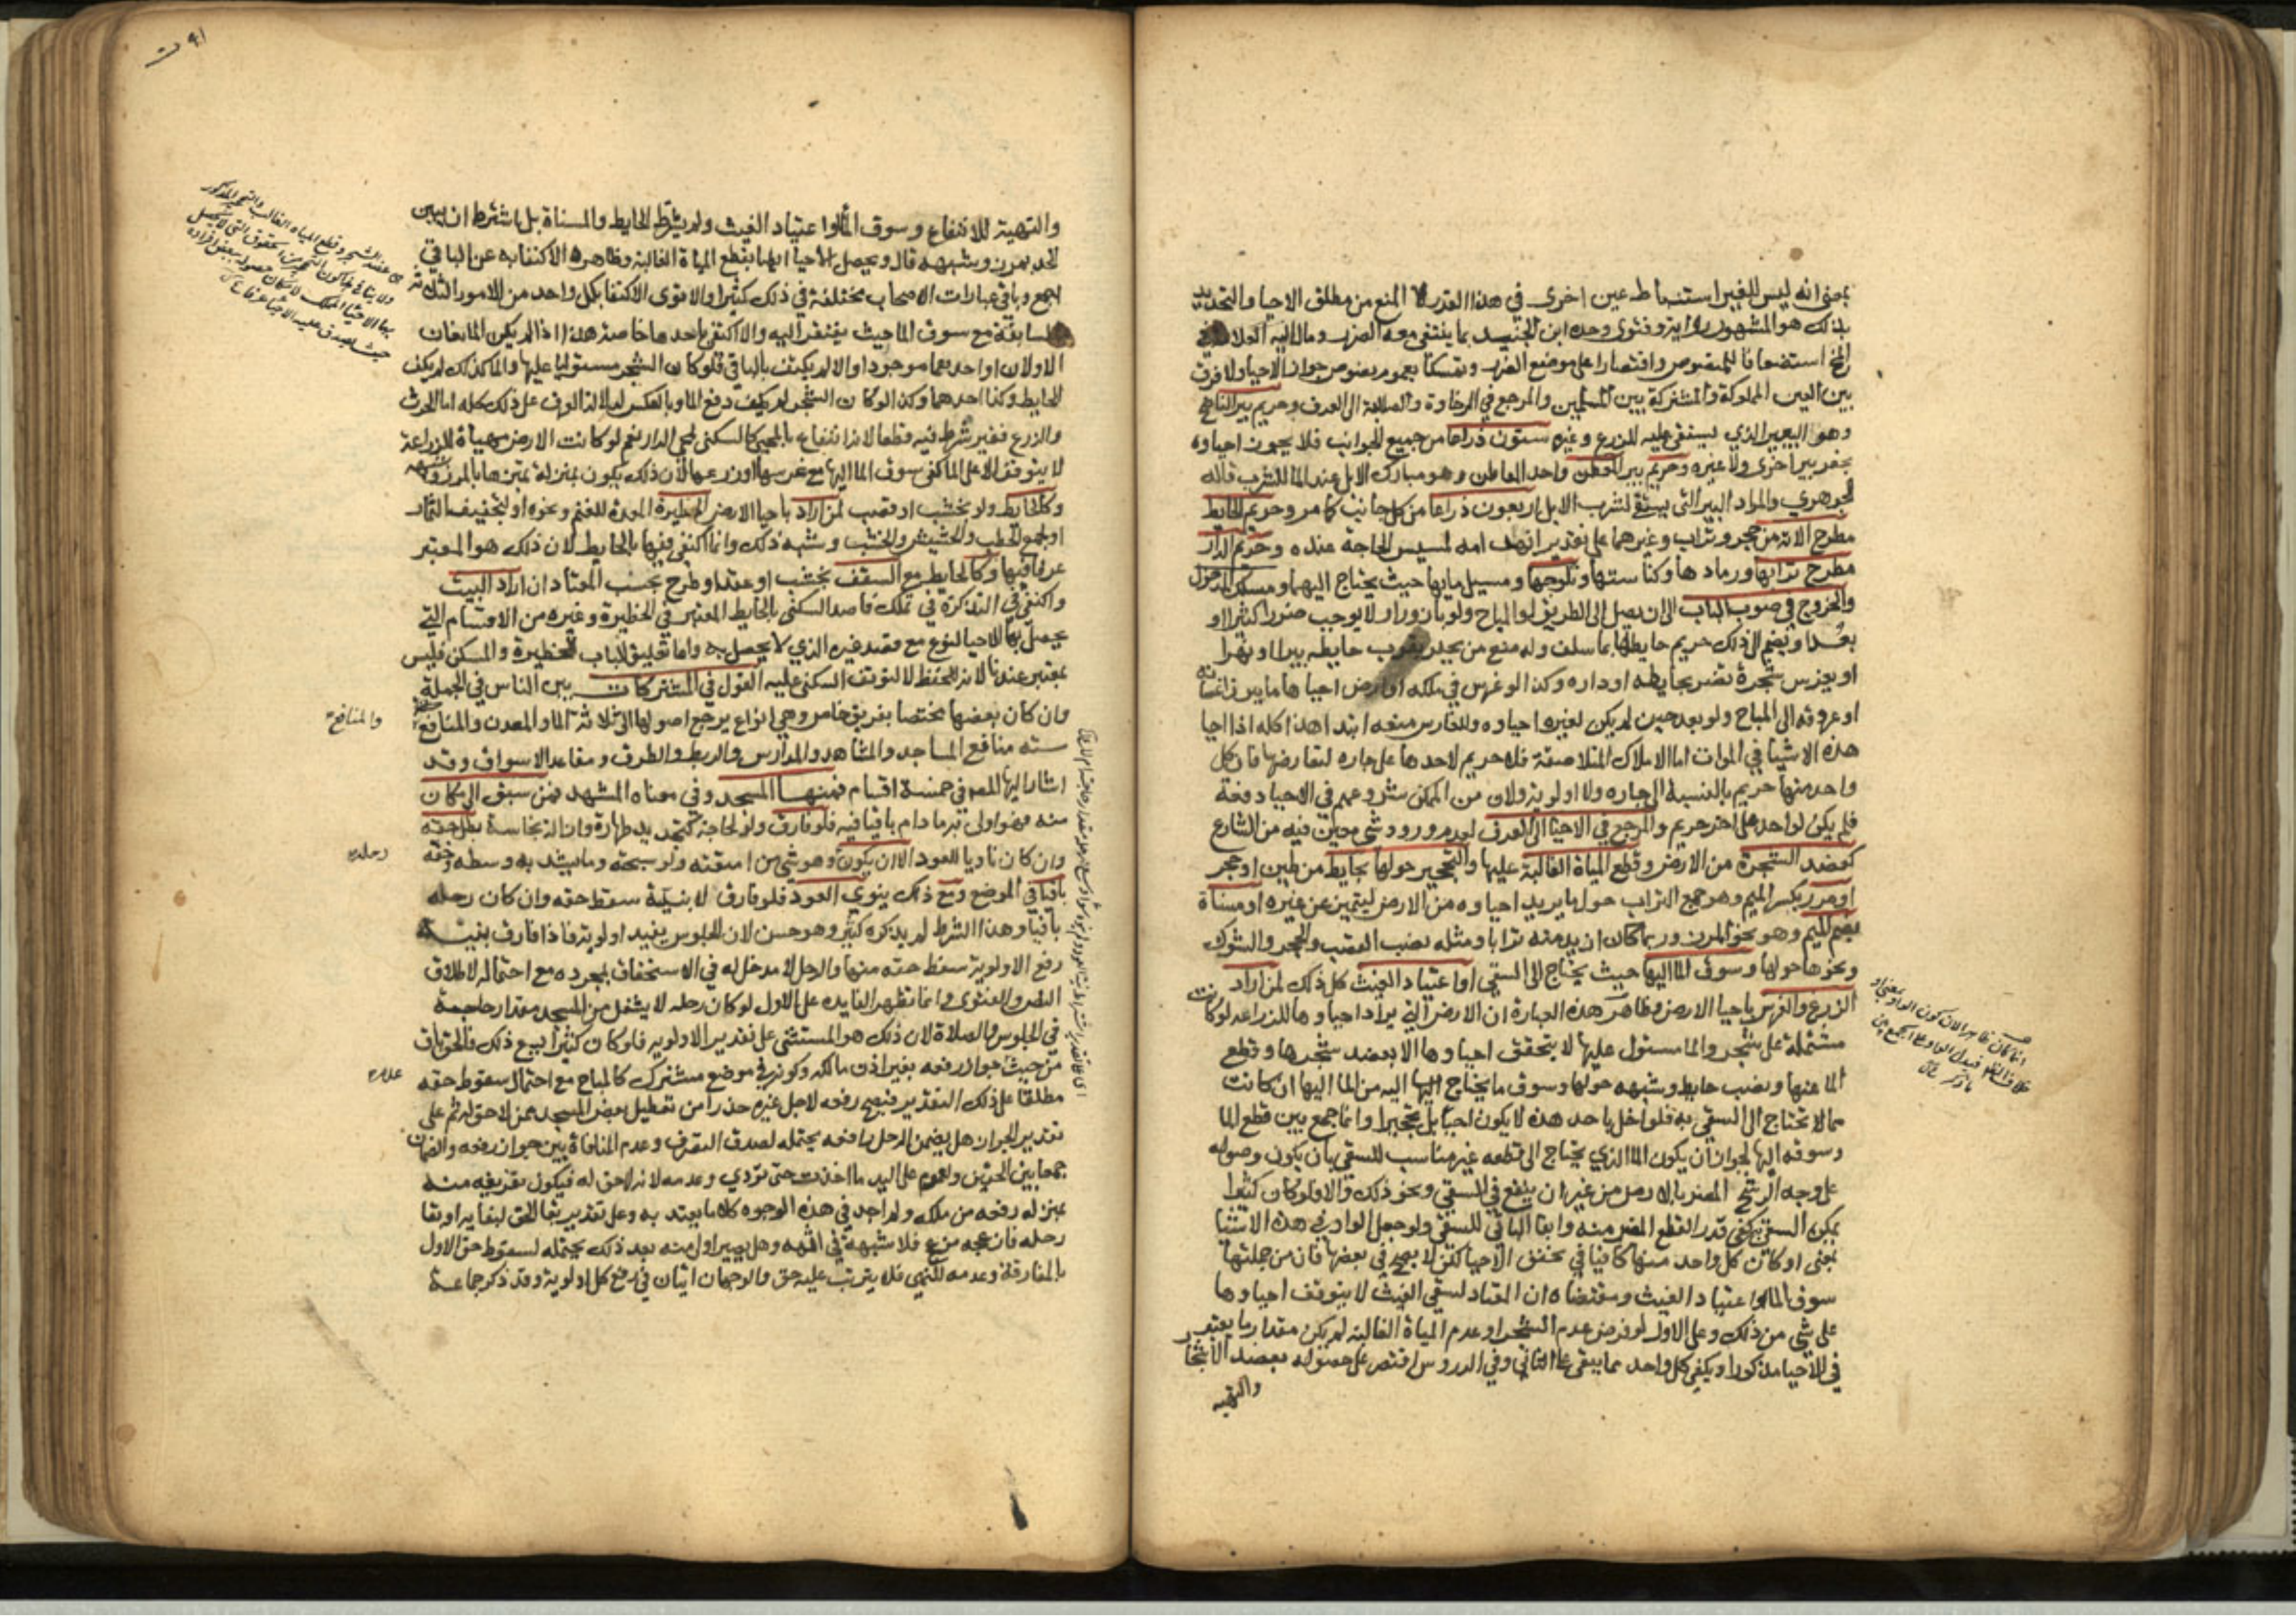 بمعنى انه ليس للغير استنباط عين اخرى في هذا القدر لا المنع من مطلق الاحيا والتحديد
بذلك هو المشهور رواية وفتوى وحده ابن الجنيد بما ينتفي معه الضرر ومال اليه العلامة في
المخ استضعافا للمنصوص واقتصارا على موضع الضرر وتمسكا بعموم نصوص جواز الاحيا ولا فرق
بين العين المملوكة والمشتركة بين المسلمين والمرجع في الرخاوة والصلابة الى العرف وحريم بير الناضح
وهو البعير الذي يستقى عليه للزرع وغيره ستون ذراعا من جميع الجوانب فلا يجوز احياوه
بحفر بير اخرى ولا غيره وحريم بير المعطن واحد المعاطن وهو مبارك الابل عند الما للشرب قاله
الجوهري والمراد البير التي يستقى لشرب الابل اربعون ذراعا من كل جانب كما مر وحريم الحايط
مطرح الاته من حجر وتراب وغيرهما على تقدير انهدامه لمسيس الحاجة عنده وحريم الدار
مطرح ترابها ورمادها وكناستها وثلوجها ومسيل مايها حيث يحتاج اليهما ومسلك الدخول
والخروج في صوب الباب الى ان يصل الى الطريق او المباح ولو بازورار لا يوجب ضررا كثيرا او
بعدا ويضم الى ذلك حريم حايطها بما سلف وله منع من يحفر بقرب حايطه بيرا او نهرا
او يغرس شجرة تضر بحايطه او داره وكذا لو غرس في ملكه او ارض احياها ما يبرز اغصانه
او عروقه الى المباح ولو بعد حين لم يكن لغيره احياوه وللغارس منعه ابتدا هذا كله اذا احيا
هذه الاشيا في الموات اما الاملاك المتلاصقة فلا حريم لاحدها على جاره لتعارضها فان كل
واحد منها حريم بالنسبة الى جاره ولا اولوية ولان من الممكن شروعهم في الاحيا دفعة
فلم يكن لواحد على اخر حريم والمرجع في الاحيا الى العرف لعدم ورود شى معين فيه من الشارع
كعضد الشجرة من الارض وقطع المياة الغالبة عليها والتحجير حولها بحايط من طين او حجر
او مرز بكسر الميم وهو جمع التراب حول ما يريد احياوه من الارض ليتميز عن غيره او مسناة
بضم الميم وهو نحو المرز وربما كان ازيد منه ترابا ومثله نصب القصب والحجر والشوك
ونحوها حولها وسوق الما اليها حيث يحتاج الى السقي او اعتياد الغيث كل ذلك لمن اراد
الزرع والغرس باحيا الارض وظاهر هذه العبارة ان الارض التي يراد احياوها للزراعة لو كانت
مشتملة على شجر والما مستول عليها لا يتحقق احياوها الا بعضد شجرها وقطع
الما عنها ونصب حايط وشبهه حولها وسوق ما يحتاج اليه من الما اليها ان كانت
مما لا تحتاج الى السقي به فلو اخل باحد هذه لا يكون احيا بل تحجيرا وانما جمع بين قطع الما
وسوقه اليها لجواز ان يكون الما الذي يحتاج الى قطعه غير مناسب للسقي بان يكون وصوله
على وجه الرشح المضر بالارض من غير ان ينفع في السقي ونحو ذلك والا فلو كان كثيرا
يمكن السقي به كفى قدر القطع المضر منه وابقا الباقي للسقي ولو جعل الواو في هذه الاشيا
بمعنى او كان كل واحد منها كافيا في تحقق الاحيا لكن لا يصح في بعضها فان من جملتها
سوق الما او اعتياد الغيث ومقتضاه ان المعتاد لسقي الغيث لا يتوقف احياوها
على شى من ذلك وعلى الاول لو فرض عدم الشجر او عدم المياة الغالبة لم يكن مقدار ما يعتبر
في الاحيا مذكورا ويكفي كل واحد مما يبقى على الثاني وفي الدروس اقتصر على حصوله بعضد الاشجار
والتهية
والتهية للانتفاع وسوق الما او اعتياد الغيث ولم يشترط الحايط والمسناة بل اشترط ان يبين
الحد بمرز وشبهه قال ويحصل الاحيا ايضا بقطع المياة الغالبة وظاهره الاكتفا به عن الباقي
اجمع وباقي عبارات الاصحاب مختلفة في ذلك كثيرا والاقوى الاكتفا بكل واحد من الامور الثلاثة
السابقة مع سوق الما حيث يفتقر اليه والا اكتفي باحدها خاصة هذا اذا لم يكن المانعان
الاولان او احدهما موجودا والا لم يكتف بالباقي فلو كان الشجر مستوليا عليها والما كذلك لم يكف
الحايط وكذا احدهما وكذا لو كان الشجر لم يكف دفع الما وبالعكس لدلالة العرف على ذلك كله اما الحرث
والزرع فغير شرط فيه قطعا لانه انتفاع بالمحيى كالسكنى لمحيي الدار نعم لو كانت الارض مهياة للزراعة
لا يتوقف الا على الما كفى سوق الما اليها مع غرسها او زرعها لان ذلك يكون بمنزلة تميزها بالمرز وشبهه
وكالحايط ولو بخشب او قصب لمن اراد باحيا الارض الحظيرة المعدة للغنم ونحوه او لتجفيف الثمار
او لجمع الحطب والحشيش والخشب وشبه ذلك وانما اكتفى فيها بالحايط لان ذلك هو المعتبر
عرفا فيها وكالحايط مع السقف بخشب او عقد او طرح بحسب المعتاد ان اراد البيت
واكتفى في التذكرة في تملك قاصد السكنى بالحايط المعتبر في الحظيرة وغيره من الاقسام التي
يحصل بها الاحيا لنوع مع قصد غيره الذي لا يحصل به واما تعليق الباب للحظيرة والمسكن فليس
بمعتبر عندنا لانه للحفظ لا لتوقف السكنى عليه القول في المشتركات بين الناس في الجملة
وان كان بعضها مختصا بفريق خاص وهي انواع يرجع اصولها الى ثلاثة الما والمعدن والمنافع
والمنافع
سته منافع المساجد والمشاهد والمدارس والربط والطرق ومقاعد الاسواق وقد
اشار اليها المص في خمسة اقسام فمنها المسجد وفي معناه المشهد فمن سبق الى مكان
منه فهو اولى به ما دام باقيا فيه فلو فارق ولو لحاجة كتجديد طهارة وازالة نجاسة بطل حقه
وان كان ناويا للعود الا ان يكون وهو شى من امتعته ولو سبحة وما يشد به وسطه وخفه
رحله
باقيا في الموضع ومع ذلك ينوي العود فلو فارق لا بنيته سقط حقه وان كان رحله
باقيا وهذا الشرط لم يذكره كثير وهو حسن لان الجلوس يفيد اولوية فاذا فارق بنية
رفع الاولوية سقط حقه منها والرحل لا مدخل له في الاستحقاق بمجرده مع احتماله لاطلاق
النص والفتوى وانما تظهر الفايدة على الاول لو كان رحله لا يشغل من المسجد مقدار حاجته
في الجلوس والصلاة لان ذلك هو المستثنى على تقدير الاولوية فلو كان كثيرا يسع ذلك فالحق باق
من حيث جواز رفعه بغير اذن مالكه وكونه في موضع مشترك كالمباح مع احتمال سقوط حقه
مطلقا على ذلك التقدير فيصح رفعه لاجل غيره حذرا من تعطيل بعض المسجد ممن لا حق له ثم على
تقدير الجواز هل يضمن الرحل رافعه يحتمله لصدق التصرف وعدم المنافاة بين جواز رفعه والضمان
جمعا بين الحقين ولعموم على اليد ما اخذت حتى تؤدي وعدمه لانه لا حق له فيكون تفريغه منه
بمنزلة رفعه من ملكه ولم اجد في هذه الوجوه كلاما يعتد به وعلى تقدير بقا الحق لبقايه او بقا
رحله فان ازعجه مزعج فلا شبهة في اثمه وهل يصير اولى منه بعد ذلك يحتمله لسقوط حق الاول
بالمفارقة وعدمه للنهي فلا يترتب عليه حق والوجهان اتيان في رفع كل اولوية وقد ذكر جماعة